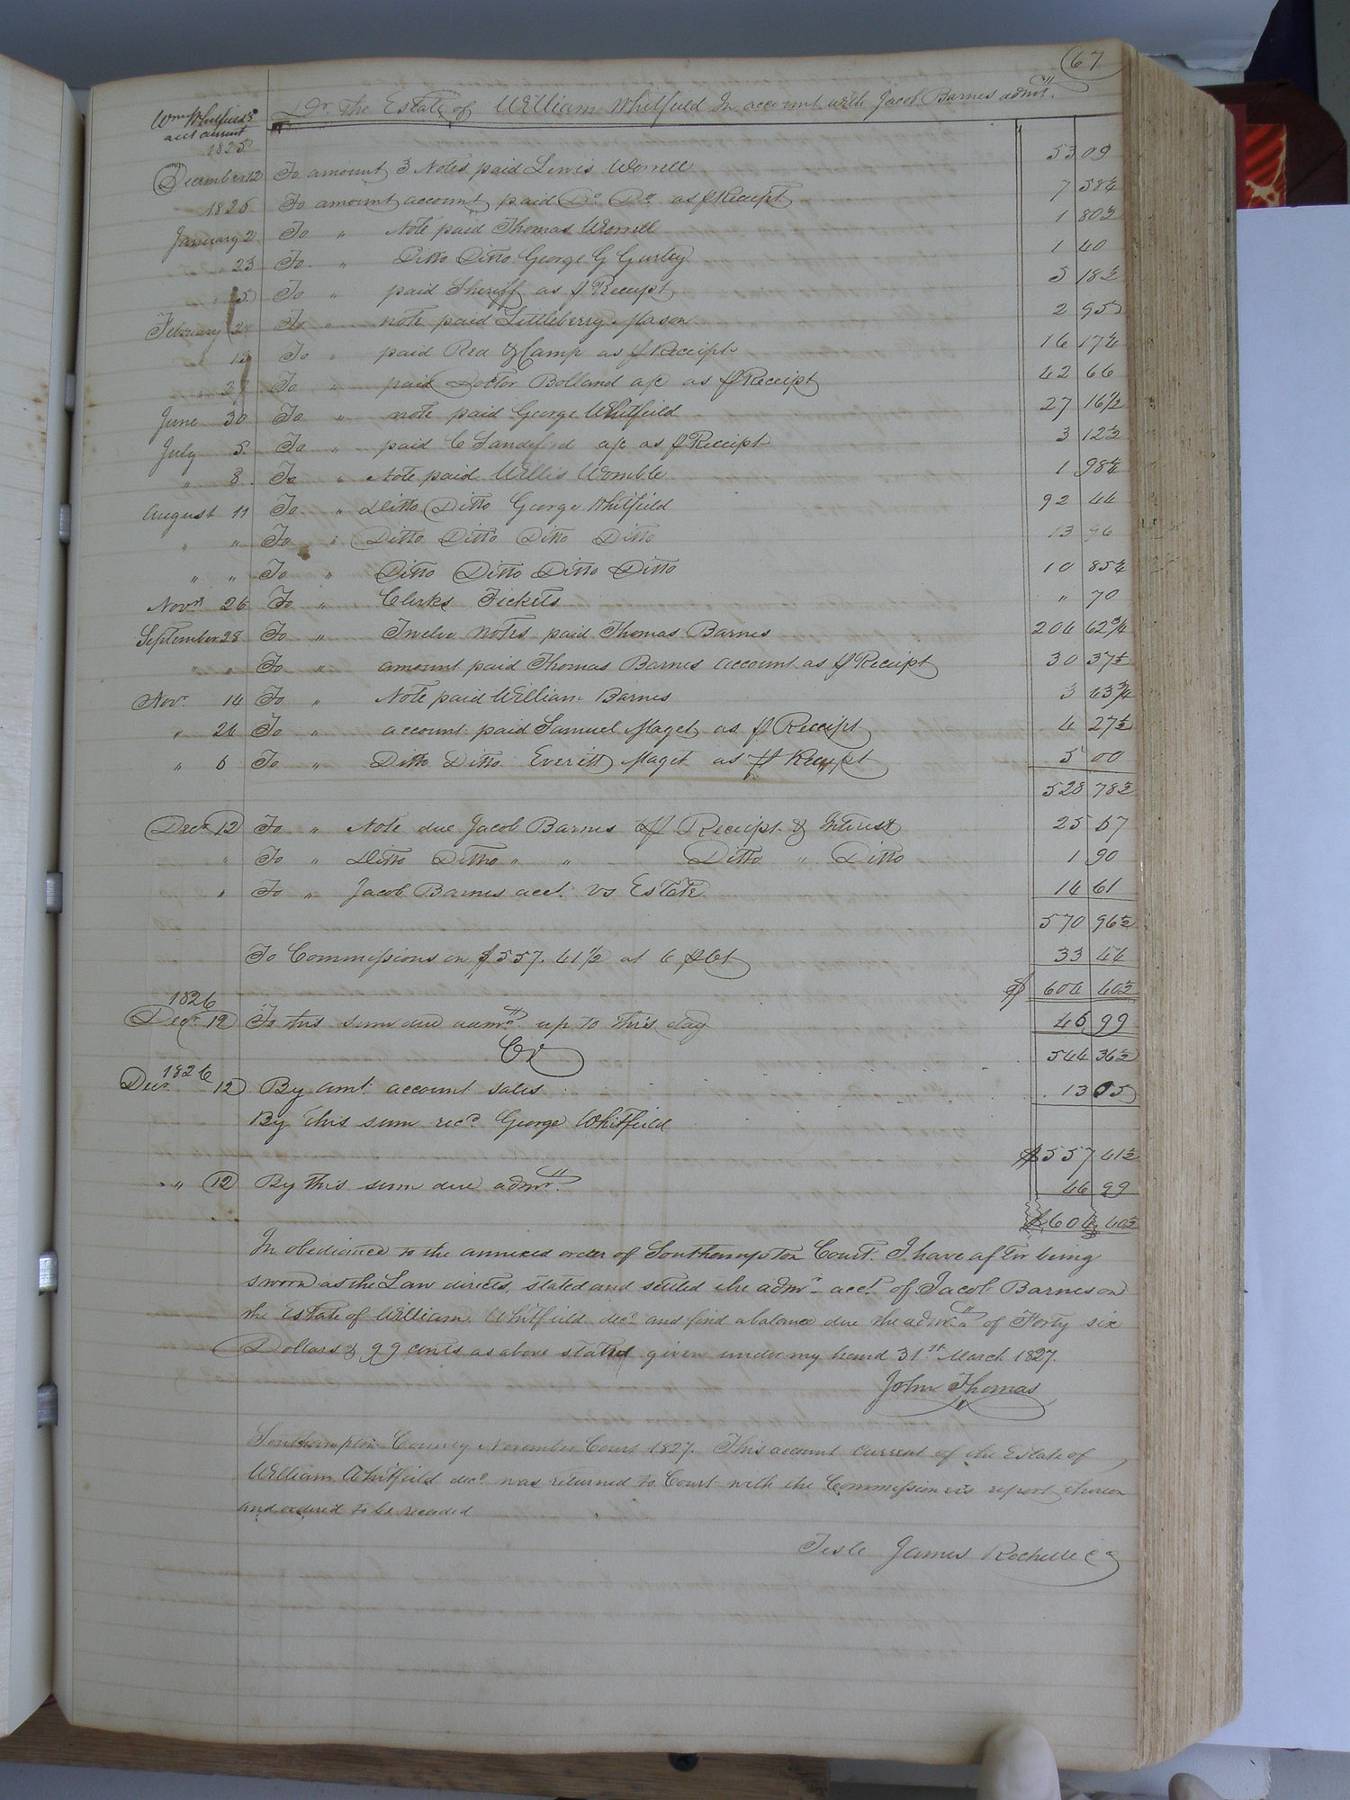 67
Wm Whitfield's
acct current
Dr. The Estate of William Whitfield In account with Jacob Barnes admr.
1825
December 12 To amount 3 Notes paid Lewis Worrell 53 09
1826 To amount account paid Do. Do. as pr Receipt 7 58½
January 2 To " Note paid Thomas Worrell 1 80½
23 To " Ditto Ditto George G Gurley 1 40
25 To " paid Sheriff as pr Receipt 5 18½
February 20 To " note paid Littleberry Mason 2 95
To " paid & Camp as pr Receipt 16 17½
27 To " paid Doctor Bolland a/c as pr Receipt 42 66
June 30 To " note paid George Whitfield 27 16½
July 5 To " paid C Landford a/c as pr Receipt 3 12½
" 8 To " Note paid Willis Womble 1 98½
August 11 To " Ditto Ditto George Whitfield 92 44
" " To " Ditto Ditto Ditto Ditto 13 96
" " To " Ditto Ditto Ditto Ditto 10 85½
Novr 26 To " Clerks Tickets " 70
September 28 To " Twelve notes paid Thomas Barnes 204 62¾
" " To " amount paid Thomas Barnes account as pr Receipt 30 37½
Novr 14 To " Note paid William Barnes 3 43¾
" 24 To " account paid Samuel Maget as pr Receipt 4 27½
" 6 To " Ditto Ditto Everitt Maget as pr Receipt 5 00
528 78½
Decr 12 To " Note due Jacob Barnes as pr Receipt & Interest 25 67
" To " Ditto Ditto " " Ditto " Ditto 1 90
" To " Jacob Barnes acct. vs Estate 14 61
570 96½
To Commissions on $557.41½ at 6 pr Ct 33 44
$ 604 40½
1826
Decr 12 To this sum due admr. up to this day 46 99
Cr 544 36½
1826
Decr 12 By amt. account sales 13 05
By this sum recd George Whitfield
$557 41½
" 12 By this sum due admr. 46 99
$604 40½
In obedience to the annexed order of Southampton Court. I have after being
sworn as the Law directs, stated and settled the admr. acct. of Jacob Barnes on
the Estate of William Whitfield decd and find a balance due the admr of Forty six
Dollars & 99 cents as above stated given under my hand 31st March 1827.
John Thomas
Southampton County November Court 1827. This account current of the Estate of
William Whitfield decd was returned to Court with the Commissioners report thereon
and ordered to be recorded
Teste James Rochelle